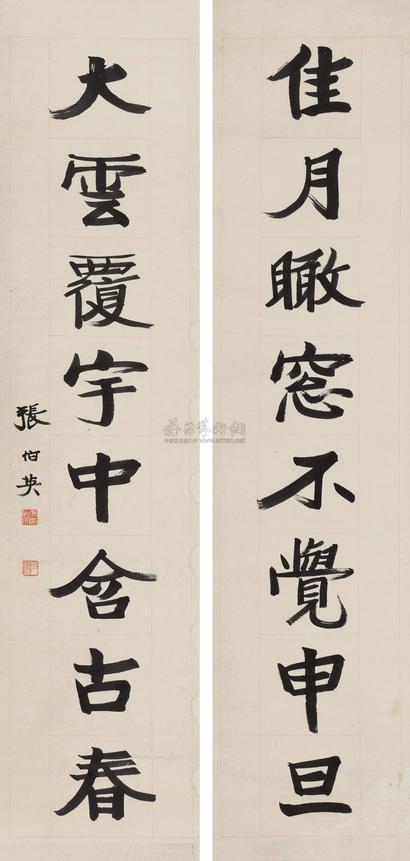 佳月瞰窓不覺申旦
大雲覆宇中含古春
張伯英
www.artron.net